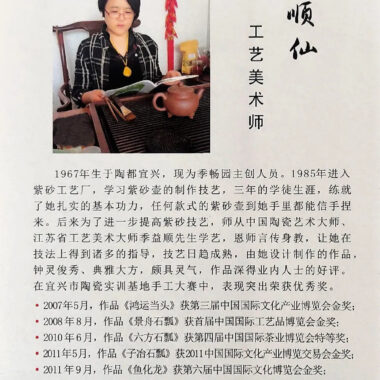 顺仙
工艺美术师
1967年生于陶都宜兴,现为季畅园主创人员。1985年进入
紫砂工艺厂,学习紫砂壶的制作技艺,三年的学徒生涯,练就
了她扎实的基本功力,任何款式的紫砂壶到她手里都能信手捏
来。后来为了进一步提高紫砂技艺,师从中国陶瓷艺术大师、
江苏省工艺美术大师季益顺先生学艺,恩师言传身教,让她在
技法上得到诸多的指导,技艺日趋成熟,由她设计制作的作品,
钟灵俊秀、典雅大方,颇具灵气,作品深得业内人士的好评。
在宜兴市陶瓷实训基地手工大赛中,表现突出荣获优秀奖。
•2007年5月,作品《鸿运当头》获第三届中国国际文化产业博览会金奖;
•2008年8月,作品《景舟石瓢》获首届中国国际工艺品博览会金奖;
•2010年6月,作品《六方石瓢》获第四届中国国际茶业博览会特等奖;
•2011年5月,作品《子冶石瓢》获2011中国国际文化产业博览交易会金奖;
•2011年9月,作品《鱼化龙》获第六届中国国际文化博览会金奖;